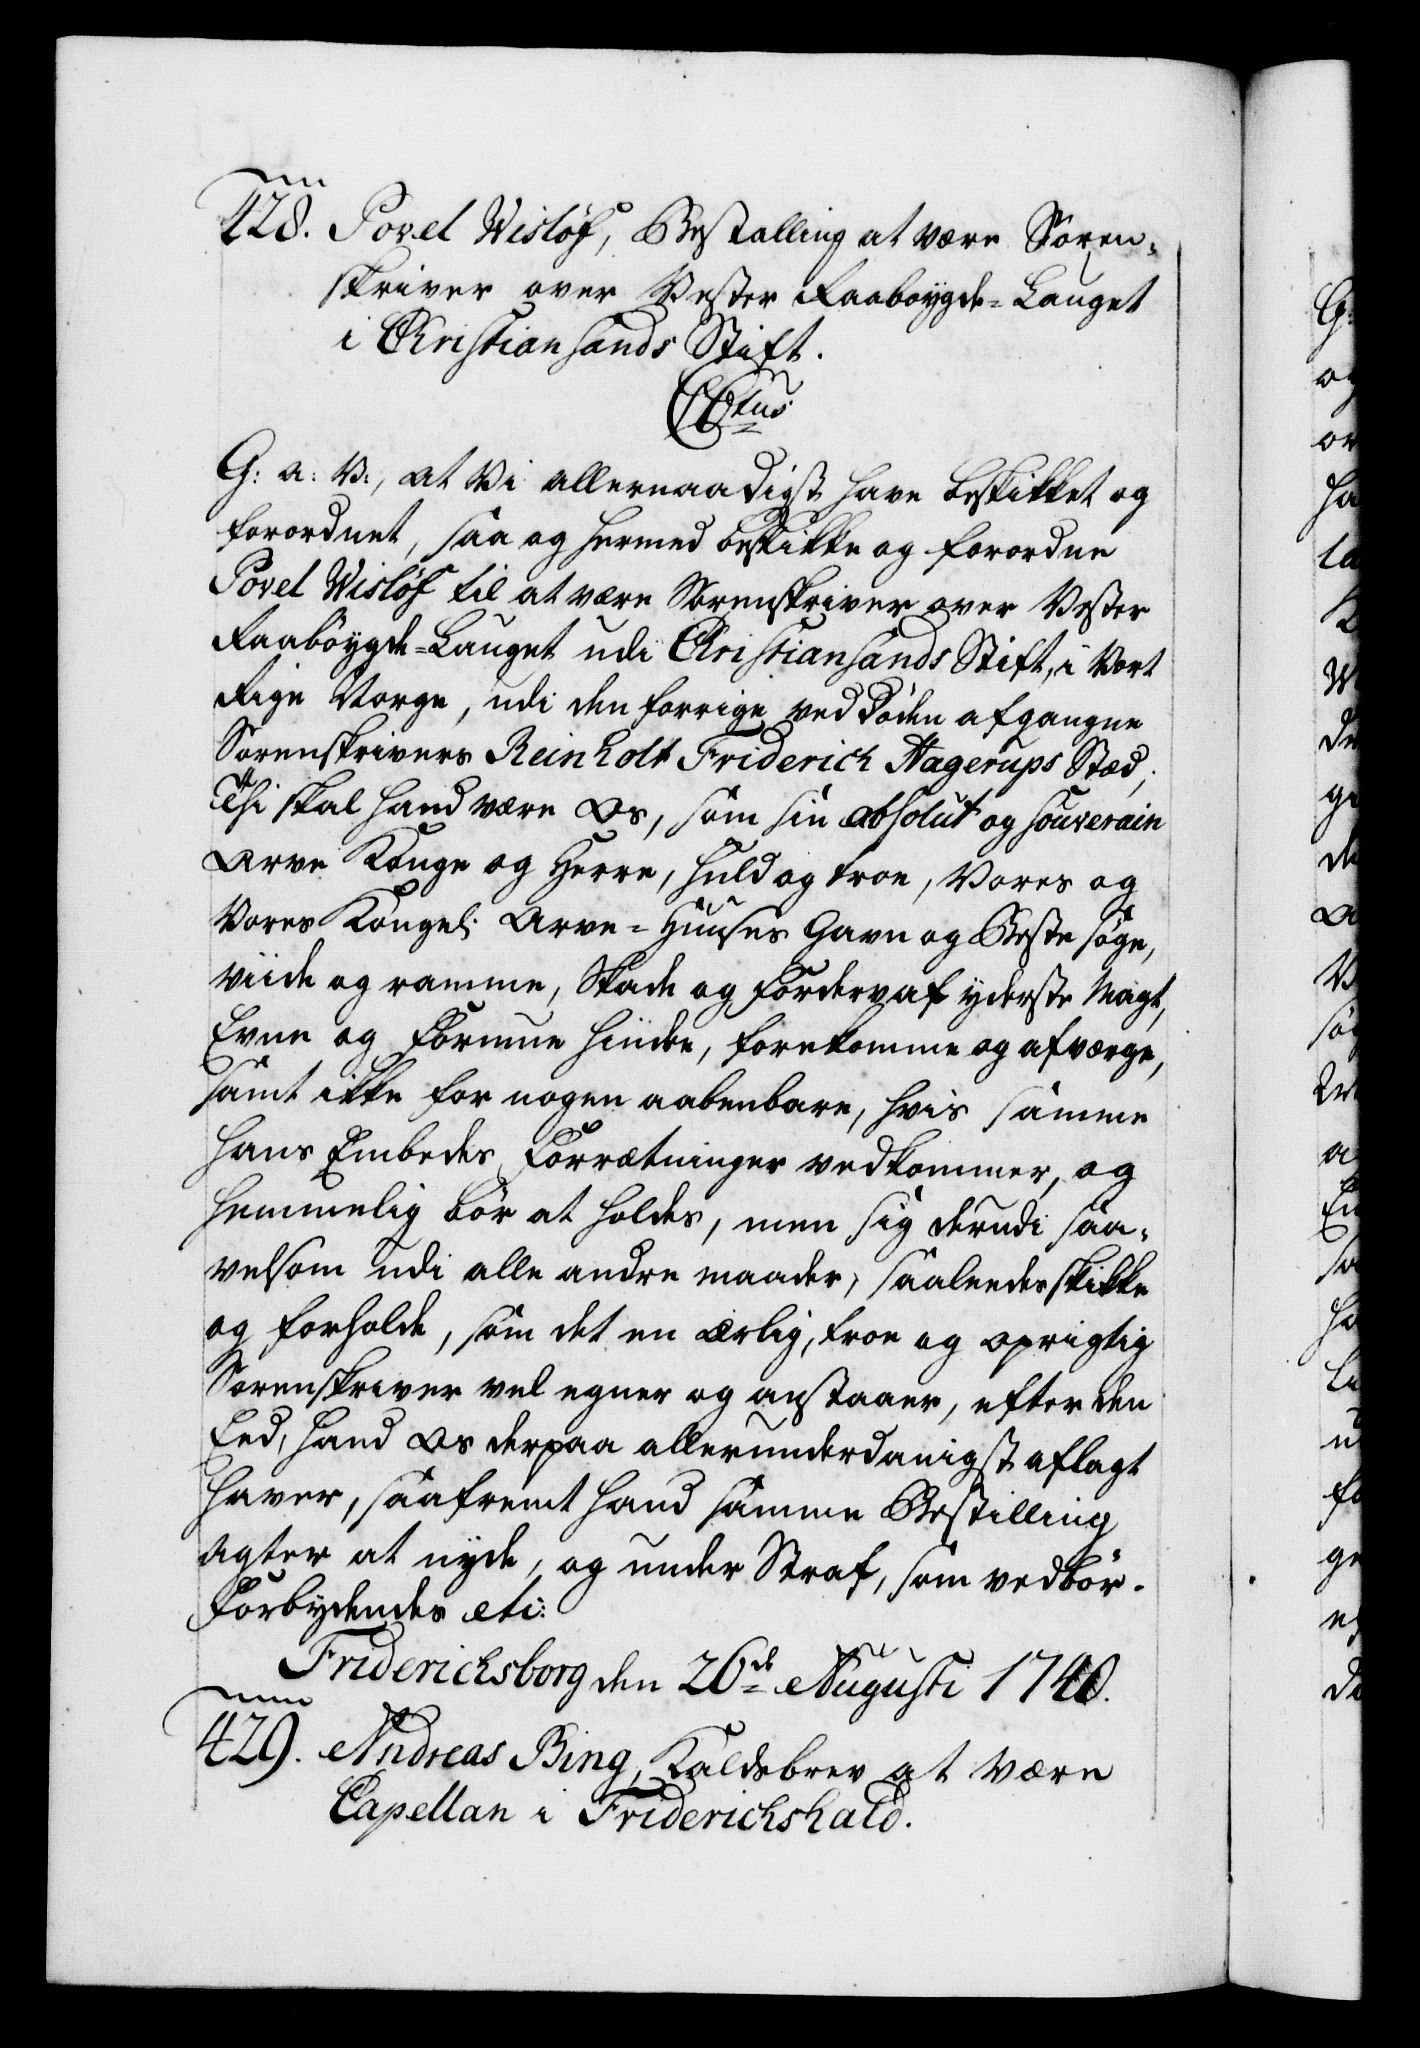 428. Povel Wisløf, Bestalling at være Soren-
skriver over Vester Raabøygde-Lauget
i Christiansands Stift.
C6tus
G: a: V:, at Vi allernaadigst have beskikket og
forordnet, saa og hermed beskikke og forordne
Povel Wisløf til at være Sorenskriver over Vester
Raabøygde-Lauget udi Christiansands Stift, i Vort
Rige Norge, udi den forrige ved Døden afgangne
Sorenskrivers Reinholt Friderich Hagerups Stæd;
Thi skal hand være Os, som sin absolut og souverain
Arve Konge og Herre, huld og troe, Vores og
Vores Kongel: Arve-Huuses Gavn og Beste søge,
viide og ramme, Skade og Forderv af yderste Magt,
Evne og Formue hindre, forekomme og afværge,
samt ikke for nogen aabenbare, hvis samme
hans Embedes Forrætninger vedkommer, og
hemmelig bør at holdes, men sig derudi saa-
velsom udi alle andre maader, saaleedes skikke
og forholde, som det en ærlig, troe og oprigtig
Sorenskriver vel egner og anstaaer, efter den
Eed, hand Os derpaa allerunderdanigst aflagt
haver, saafremt hand samme Bestilling
agter at nyde, og under Straf, som vedbør.
Forbydendes etc:
Friderichsborg den 26de Augusti 1740.
429. Andreas Bing, Kaldsbrev at være
Capellan i Friderichshald.